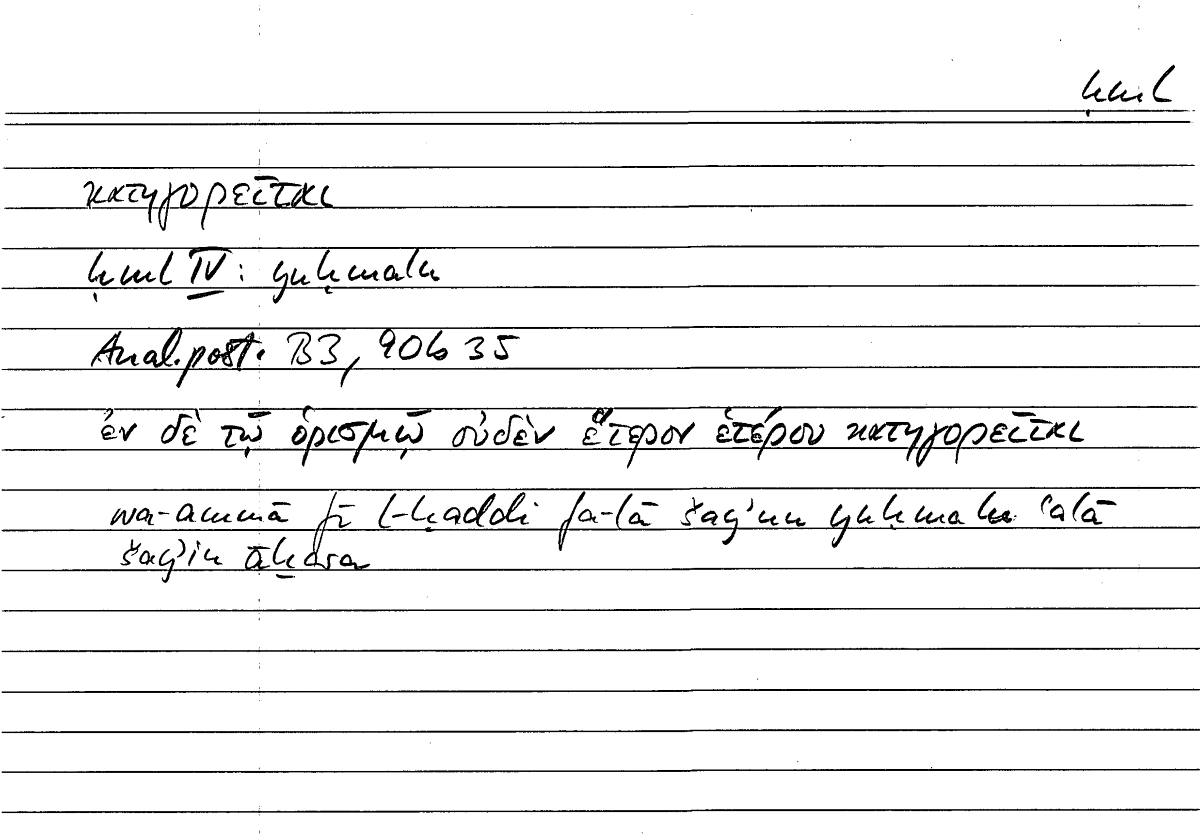 ḥml
κατηγορεῖται
ḥml IV: yuḥmalu
Anal. post. B3, 90b 35
ἐν δὲ τῷ ὁρισμῷ οὐδὲν ἕτερον ἑτέρου κατηγορεῖται
wa-ammā fī l-ḥaddi fa-lā šay'un yuḥmalu ʿalā
šay'in āḫara